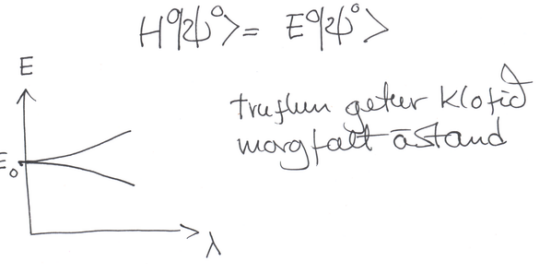 H⁰|ψ⁰> = E⁰|ψ⁰>
E
truflun getur klofið
margfalt ástand
E₀
λ